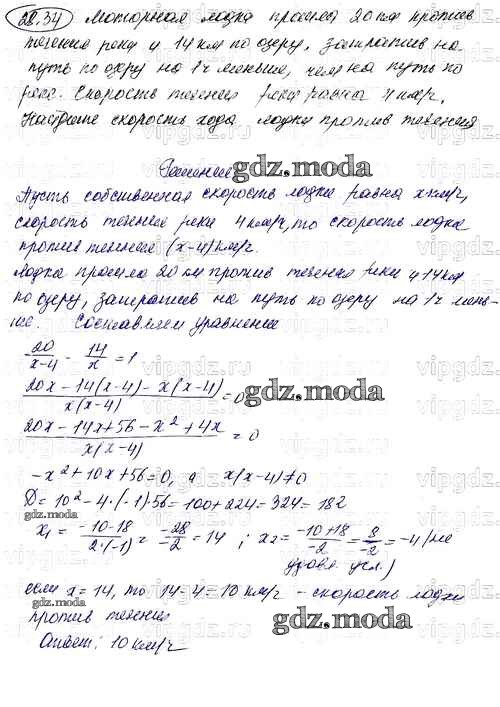 28.34 Моторная лодка прошла 20 км против
течения реки и 14 км по озеру, затратив на
путь по озеру на 1ч меньше, чем на путь по
реке. Скорость течения реки равна 4 км/ч.
Найдите скорость хода лодки против течения
Решение
gdz.moda
Пусть собственная скорость лодки равна х км/ч,
скорость течения реки 4 км/ч, то скорость лодки
против течения (x-4) км/ч.
Лодка прошла 20 км против течения реки и 14 км
по озеру, затратив на путь по озеру на 1ч мень-
ше. Составляем уравнение
20/(x-4) - 14/x = 1
(20x-14(x-4)-x(x-4))/(x(x-4)) = 0
gdz.moda
(20x-14x+56-x²+4x)/(x(x-4)) = 0
-x²+10x+56=0, а x(x-4)≠0
D=10²-4·(-1)·56=100+224=324=18²
gdz.moda
x₁ = (-10-18)/(2·(-1)) = -28/-2 = 14 ; x₂ = (-10+18)/-2 = 8/-2 = -4 (не
удовл. усл.)
если x=14, то 14-4=10 км/ч - скорость лодки
gdz.moda
против течения
gdz.moda
Ответ: 10 км/ч
vipgdz.ru